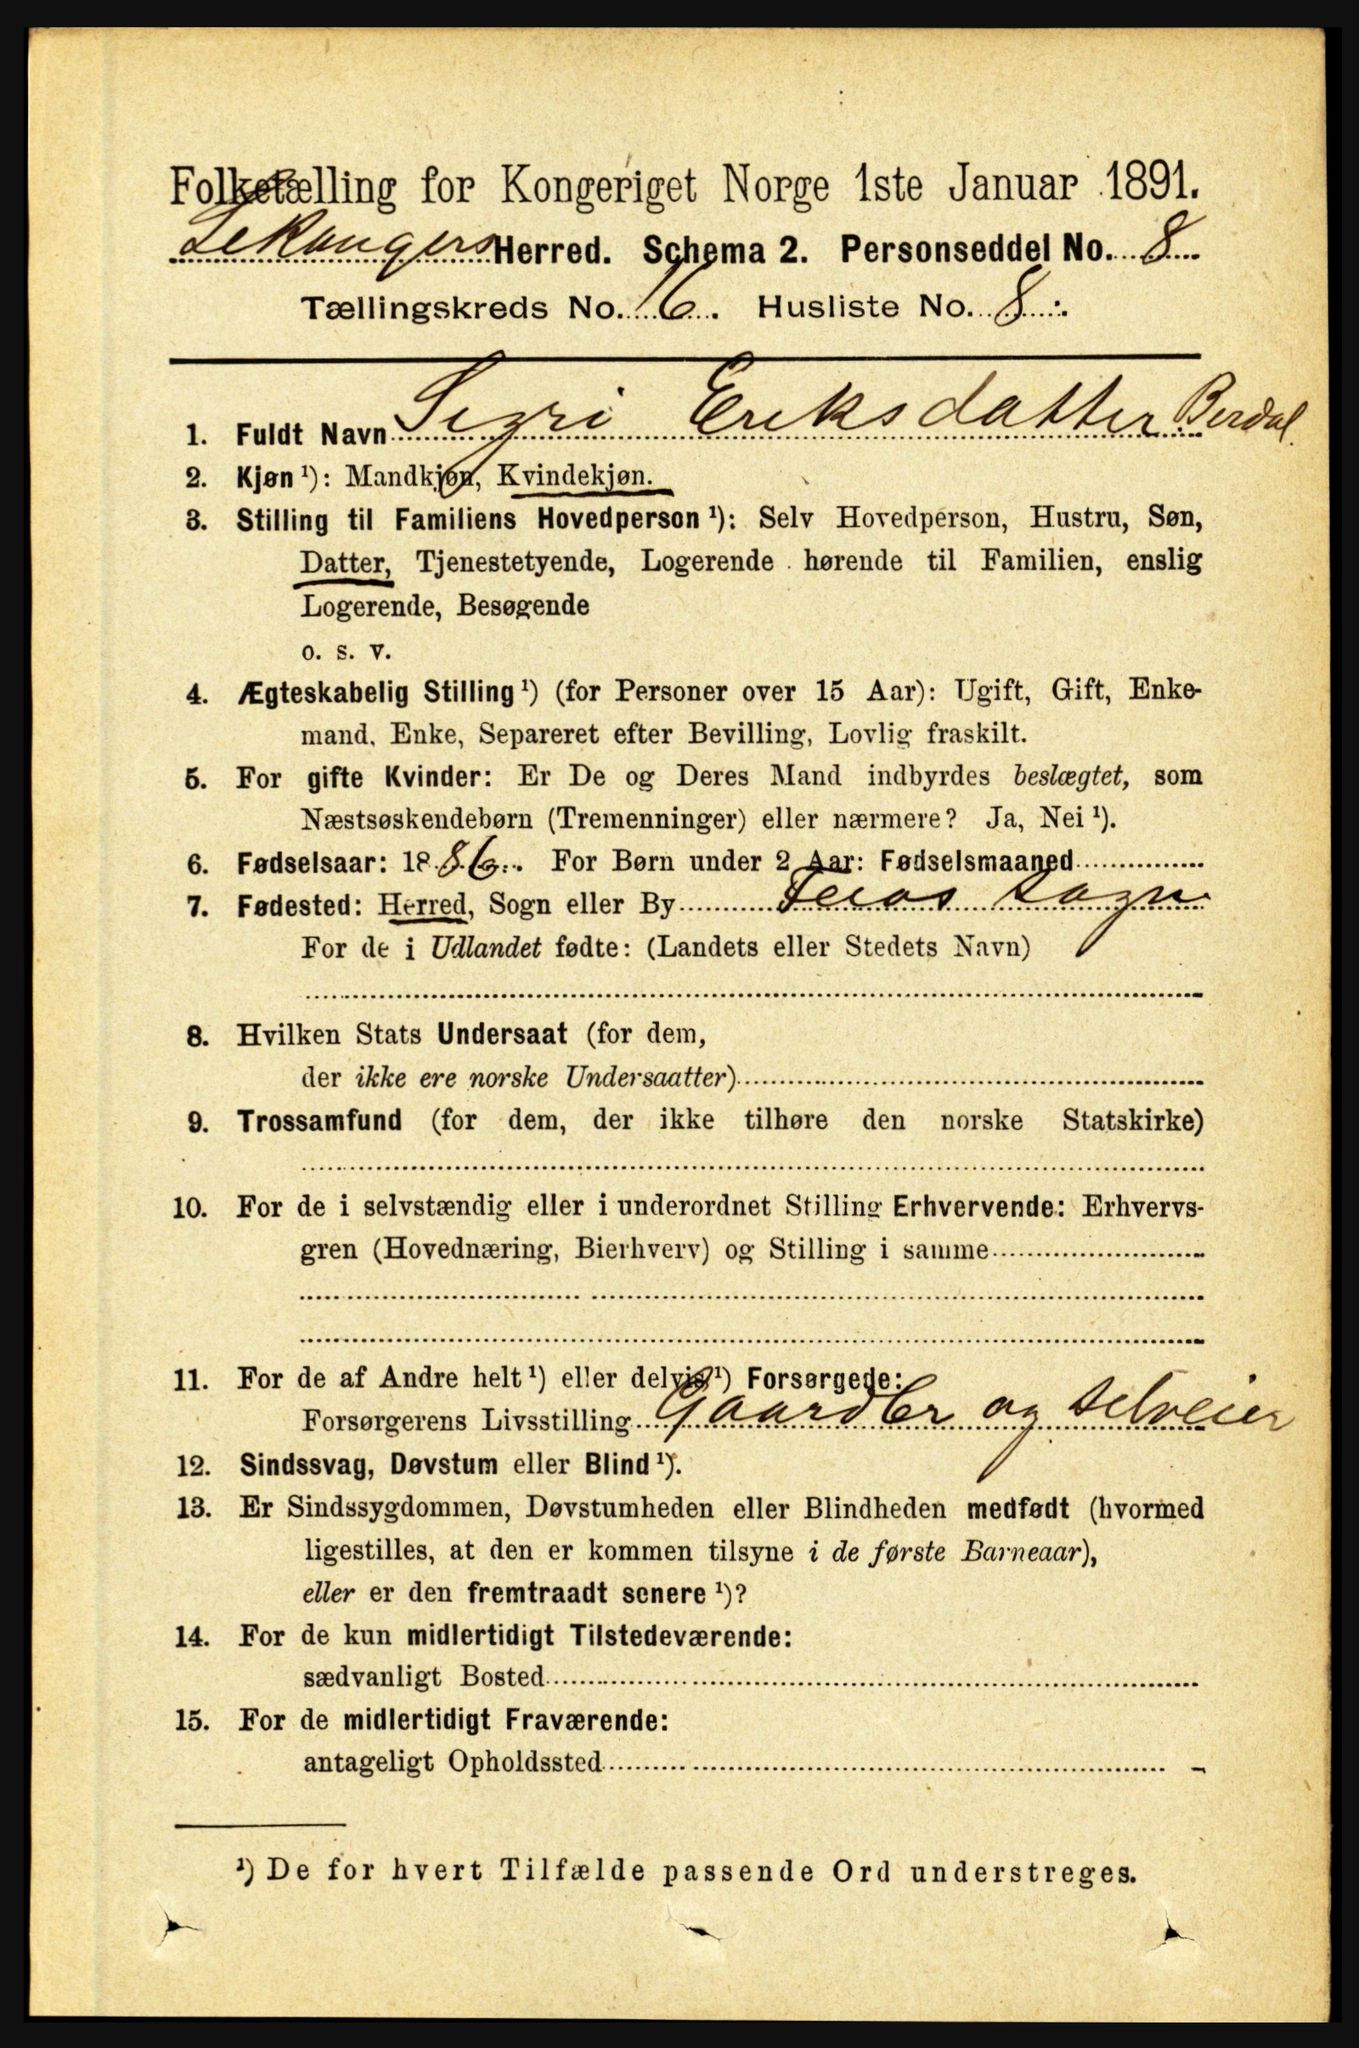 Folketælling for Kongeriget Norge 1ste Januar 1891.
Lekangers Herred. Schema 2. Personseddel No. 8
Tællingskreds No. 16. Husliste No. 8.
1. Fuldt Navn Sigri Eriksdatter Berdal.
2. Kjøn ¹): Mandkjøn, Kvindekjøn.
3. Stilling til Familiens Hovedperson ¹): Selv Hovedperson, Hustru, Søn,
Datter, Tjenestetyende, Logerende hørende til Familien, enslig
Logerende, Besøgende
o. s. v.
4. Ægteskabelig Stilling ¹) (for Personer over 15 Aar): Ugift, Gift, Enke-
mand, Enke, Separeret efter Bevilling, Lovlig fraskilt.
5. For gifte Kvinder: Er De og Deres Mand indbyrdes beslægtet, som
Næstsøskendebørn (Tremenninger) eller nærmere? Ja, Nei ¹).
6. Fødselsaar: 1886. For Børn under 2 Aar: Fødselsmaaned
7. Fødested: Herred, Sogn eller By Feios sogn
For de i Udlandet fødte: (Landets eller Stedets Navn)
8. Hvilken Stats Undersaat (for dem,
der ikke ere norske Undersaatter)
9. Trossamfund (for dem, der ikke tilhøre den norske Statskirke)
10. For de i selvstændig eller i underordnet Stilling Erhvervende: Erhvervs-
gren (Hovednæring, Bierhverv) og Stilling i samme
11. For de af Andre helt ¹) eller delvis ¹) Forsørgede:
Forsørgerens Livsstilling Gaardbr og selveier
12. Sindssvag, Døvstum eller Blind ¹).
13. Er Sindssygdommen, Døvstumheden eller Blindheden medfødt (hvormed
ligestilles, at den er kommen tilsyne i de første Barneaar),
eller er den fremtraadt senere ¹)?
14. For de kun midlertidigt Tilstedeværende:
sædvanligt Bosted
15. For de midlertidigt Fraværende:
antageligt Opholdssted
¹) De for hvert Tilfælde passende Ord understreges.